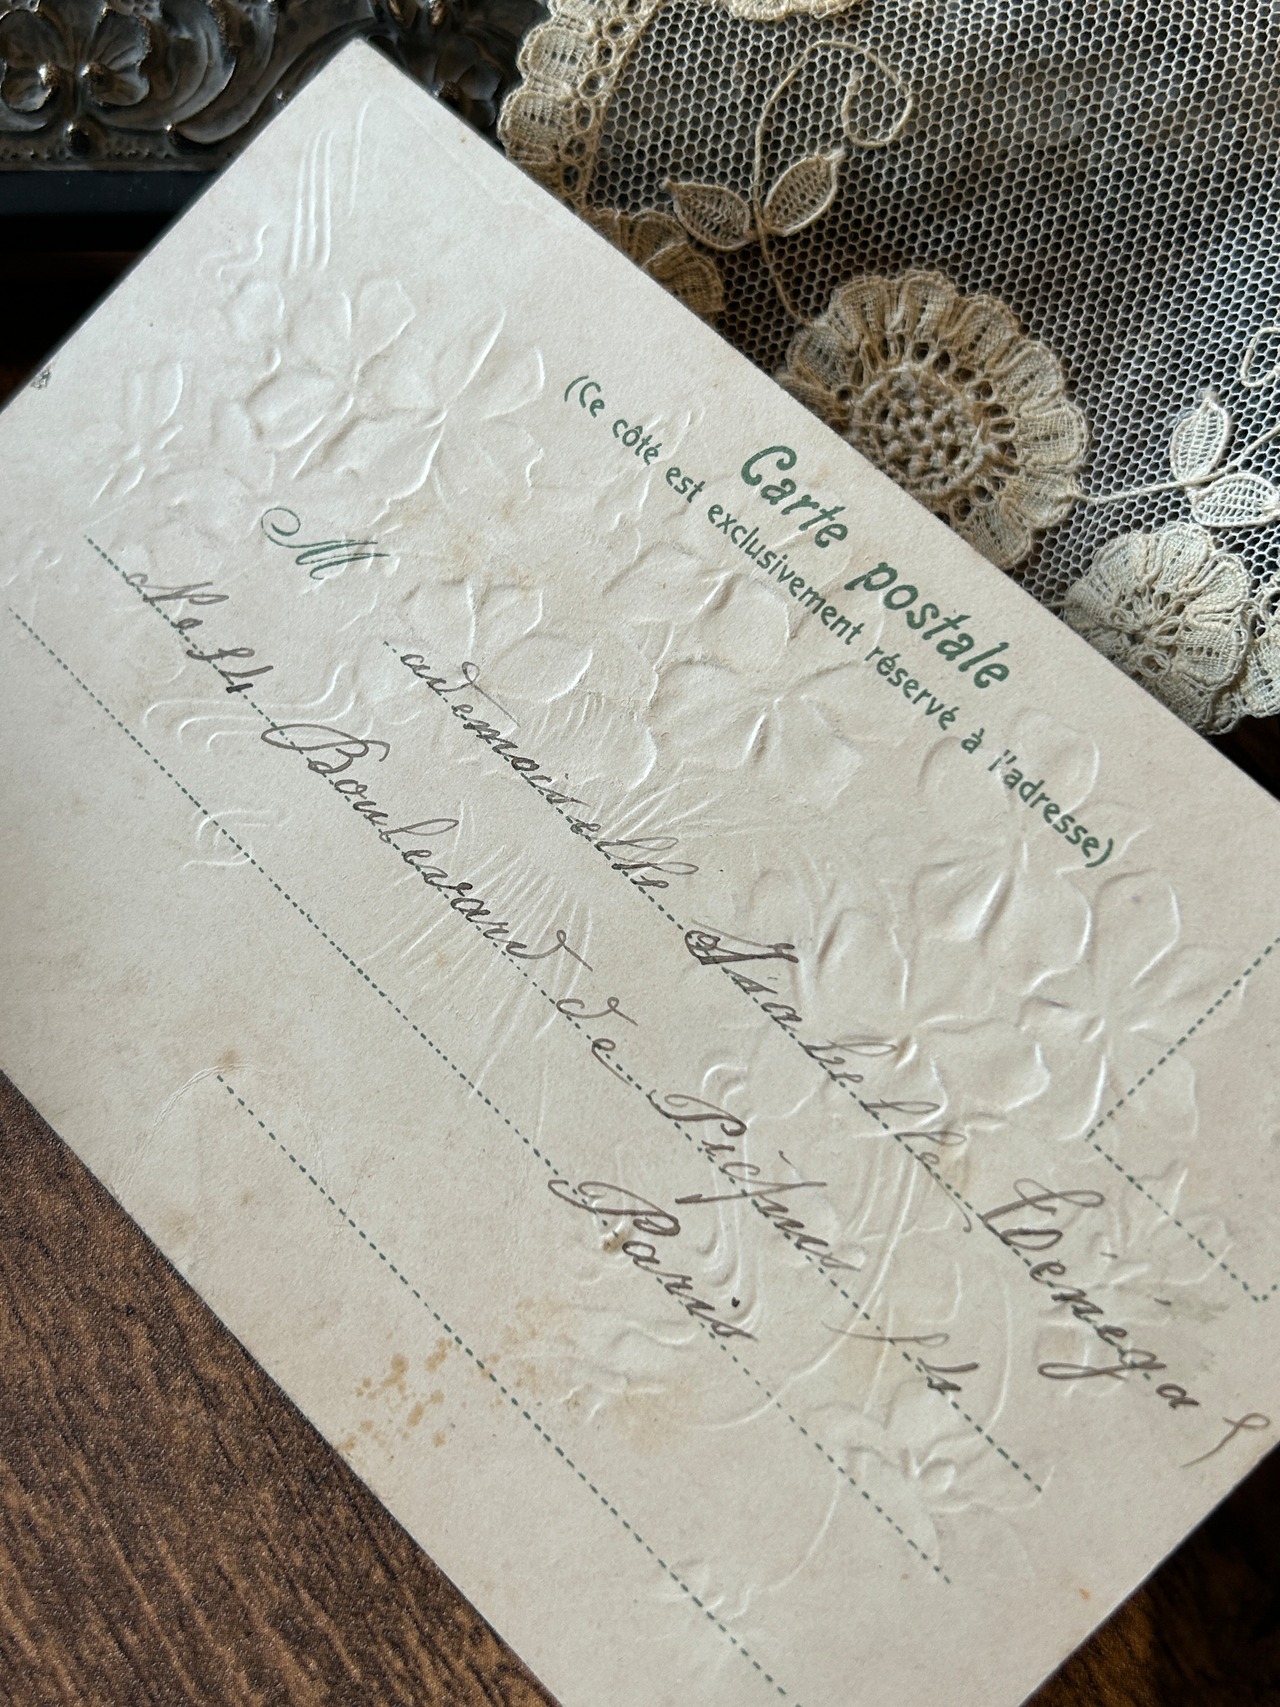 Carte postale
(Ce côté est exclusivement réservé à l'adresse)
Mademoiselle Isabelle
Boulevard de Picpus
Paris